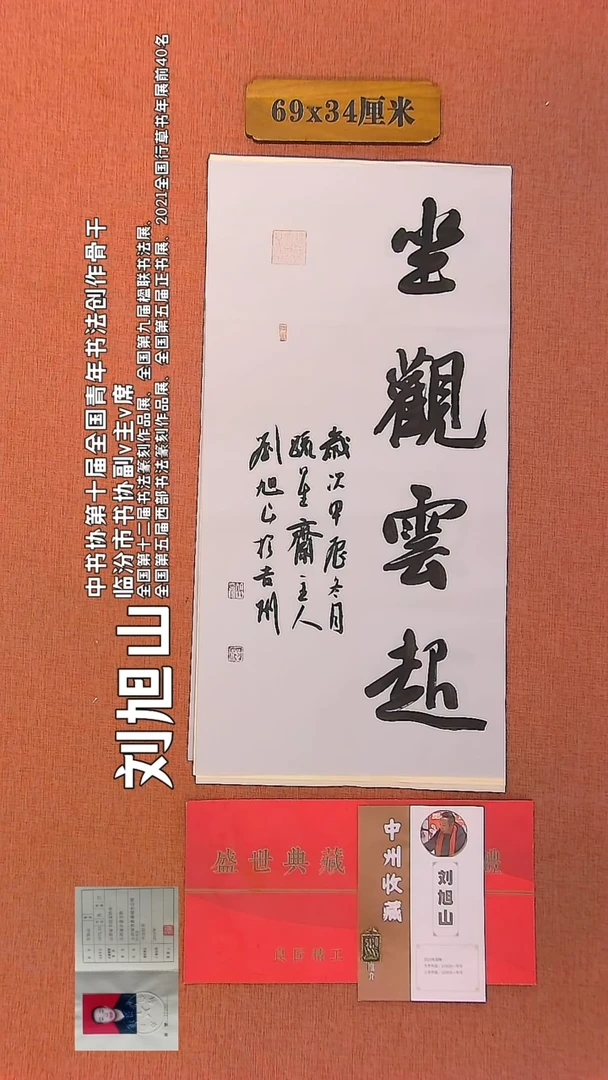 69x34厘米
坐觀雲起
歲次甲辰冬月
瓯星齋主人
刘旭山於吉州
刘旭山
中书协第十届全国青年书法创作骨干
临汾市书协副v主v席
全国第十二届书法篆刻作品展、全国第九届楹联书法展、
全国第五届西部书法篆刻作品展、全国第五届正书展、2021全国行草书年展前40名
盛世典藏
中州收藏
简介
刘旭山